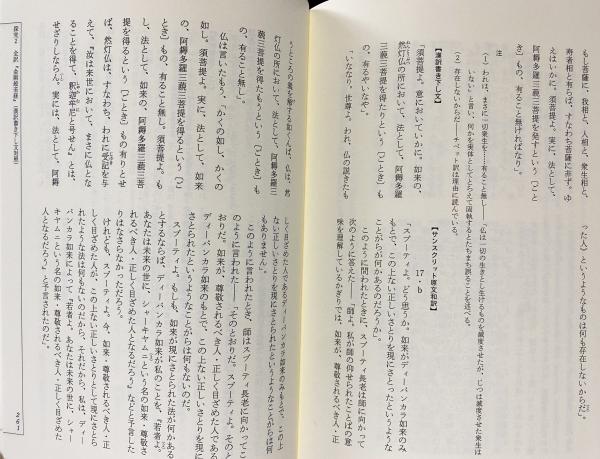 もし菩薩に、我相と、人相と、衆生相と、
寿者相と有らば、すなわち菩薩に非ず。ゆ
えはいかに。須菩提よ、実に、法として、
阿耨多羅三藐三菩提を発すという〔こと
とき〕もの、有ること無ければなり」。
った人〕というようなものは何も存在しないからだ」。
注
(1) われは、まさに一切衆生を……有ること無し――「仏は一切の生きとし生けるものを滅度させたが、じつは滅度させた衆生は
いない」と言い、何かを実体としてとらえて固執するとたちまち誤ることを述べる。
(2) 存在しないからだ――チベット訳は理由に読んでいる。
【漢訳書き下し文】
「須菩提よ、意においていかに。如来の、
然灯仏の所において、法として、阿耨多羅
三藐三菩提を得たりという〔ごとき〕も
の、有るやいなや」。
「いななり、世尊よ。われ、仏の説きたも
【サンスクリット原文和訳】
17・b
「スブーティよ、どう思うか。如来がディーパンカラ如来のみ
もとで、この上ない正しいさとりを現にさとったというような
ことがらが何かあるのだろうか」。
このように問われたときに、スブーティ長老は師に向かって
次のように答えた――「師よ。私が師の仰せられたことばの意
味を理解しているかぎりでは、如来が、尊敬されるべき人・正
うところの義を解する如くんば、仏は、然
灯仏の所において、法として、阿耨多羅三
藐三菩提を得たもうという〔ごとき〕も
の、有ること無し」。
仏は言いたもう、「かくの如し、かくの
如し。須菩提よ。実に、法として、如来
の、阿耨多羅三藐三菩提を得るという〔ご
とき〕もの、有ること無し。須菩提よ、も
し、法として、如来の、阿耨多羅三藐三菩
提を得るという〔ごとき〕もの有りとせ
ば、然灯仏は、すなわち、われに受記を与
えて、『汝は来世において、まさに仏とな
ることを得て、釈迦牟尼と号せん』とは、
せざりしならん。実には、法として、阿耨
しく目ざめた人であるディーパンカラ如来のみもとで、この上
ない正しいさとりを現にさとられたというようなことがらは何
もありません」。
このように言われたとき、師はスブーティ長老に向かってこ
のように言われた――「そのとおりだ。スブーティよ。そのと
おりだ。如来が、尊敬されるべき人・正しく目ざめた人である
ディーパンカラ如来のもとで、この上ない正しいさとりを現に
さとられたというようなことがらは何もないのだ。
スブーティよ。もしも、如来が現にさとられた法が何かある
とするならば、ディーパンカラ如来が私のことを、『若者よ。
あなたは未来の世に、シャーキヤムニという名の如来・尊敬さ
れるべき人・正しく目ざめた人となるだろう』などと予言した
りはなさらなかっただろう。
けれども、スブーティよ、今、如来・尊敬されるべき人・正
しく目ざめた人が、この上ない正しいさとりとして現にさとら
れたような法は何もないのだから、それだから、私は、ディー
パンカラ如来によって、『若者よ、あなたは未来の世に、シャー
キヤムニという名の如来・尊敬されるべき人・正しく目ざめた
人となるだろう』と予言されたのだ。
探究2 全訳『金剛般若経』〔漢訳書き下し文対照〕
261